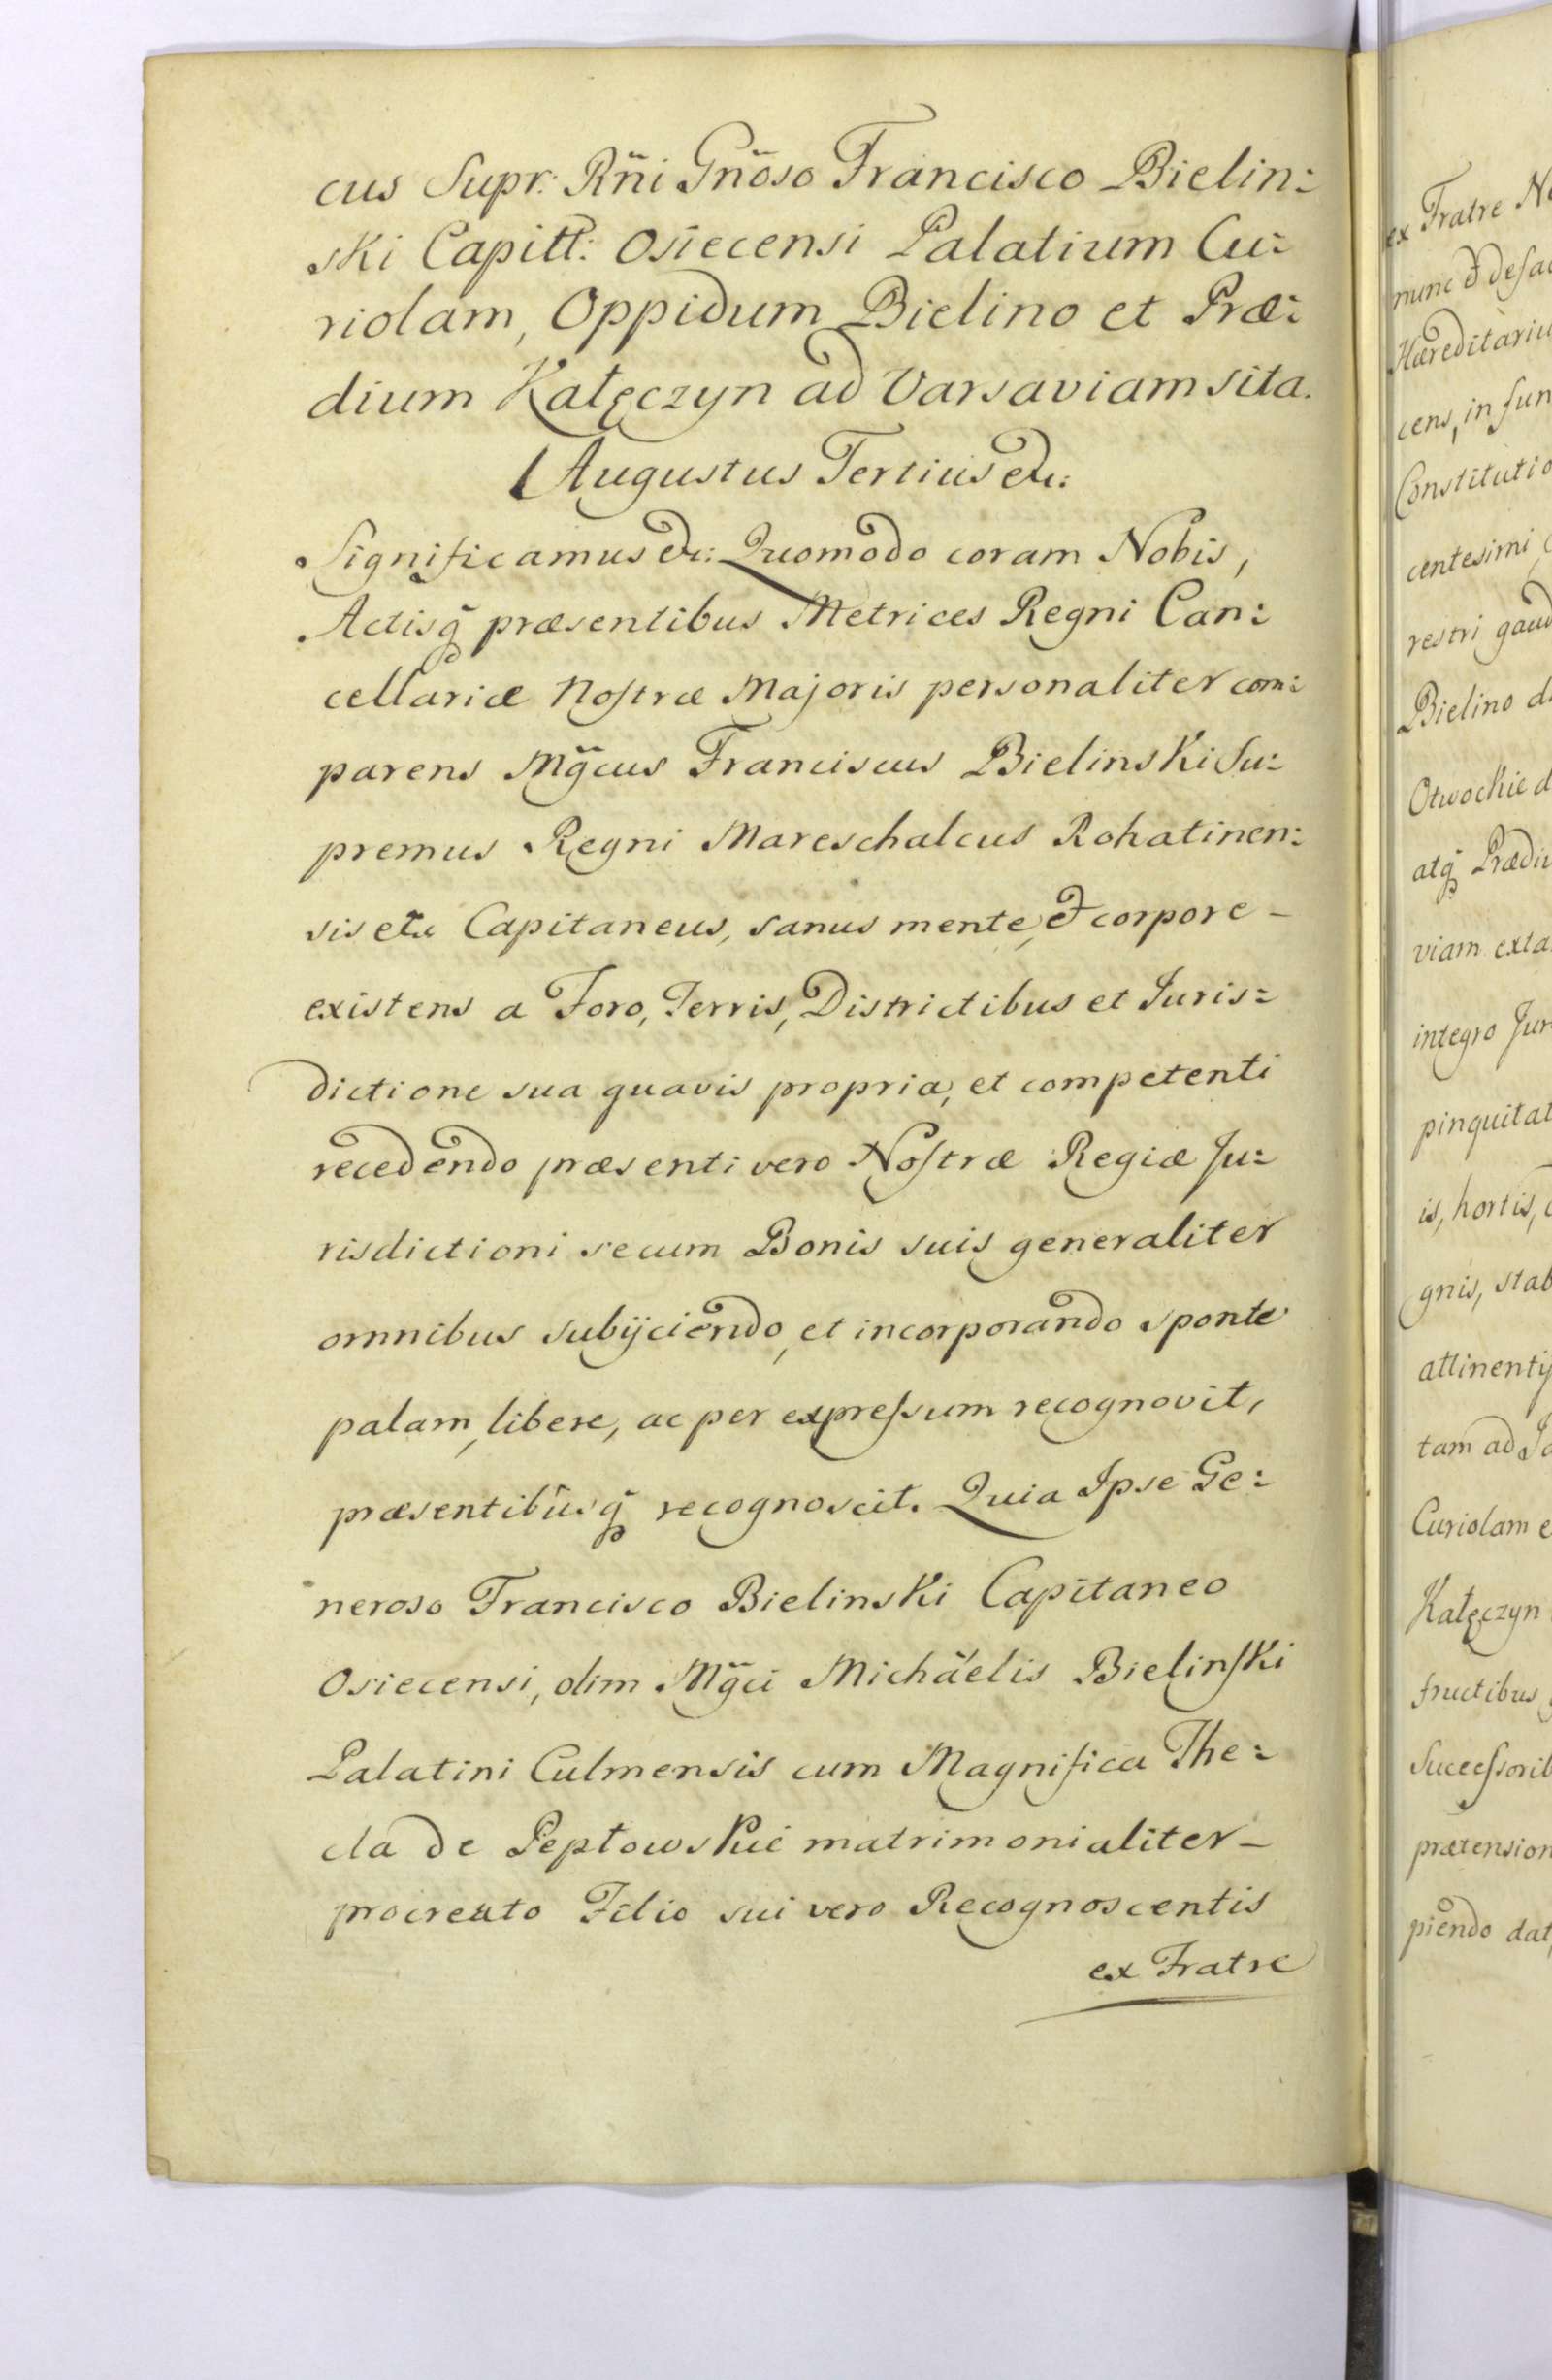 cus Supr: Rn̄i Gn̄oso Francisco Bielin:
ski Capitt: Osiecensi Palatium Cu:
riolam, Oppidum Bielino et Præ:
dium Kałęczyn ad Varsaviam sita.
Augustus Tertius etc:
Significamus etc: Quomodo coram Nobis,
Actisq̃ præsentibus Metrices Regni Can:
cellariæ Nostræ Majoris personaliter com:
parens Mg̃cus Franciscus Bielinski Su:
premus Regni Mareschalcus Rohatinen:
sis etc Capitaneus, sanus mente, et corpore –
existens a Foro, Terris, Districtibus et Juris:
dictione sua quavis propria, et competenti
recedendo præsenti vero Nostræ Regiæ Ju:
risdictioni secum Bonis suis generaliter
omnibus subijciendo, et incorporando sponte
palam, libere, ac per expressum recognovit,
præsentibusq̃ recognoscit. Quia Ipse Ge:
neroso Francisco Bielinski Capitaneo
Osiecensi, olim Mg̃ci Michaelis Bielinski
Palatini Culmensis cum Magnifica The:
cla de Pepłowskie matrimonialiter –
procreato Filio sui vero Recognoscentis
ex Fratre
ex Fratre
nunc et
Hæreditariu
cens, in fun
Constitutio
centesimi
restri gaud
Bielino
Otwockie d
atq̃ Prædiu
viam exta
integro Jur
pinguitat
is, hortis,
gnis, stab
attinentij
tam ad
Curiolam e
Kałęczyn
fructibus
Successorib
prætension
piendo dat